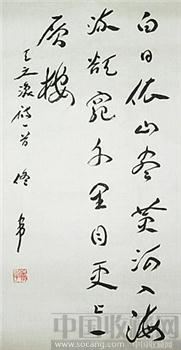 白日依山尽黄河入海
流欲穷千里目更上一
层楼
王之涣诗一首
中国收藏网
www.socang.com